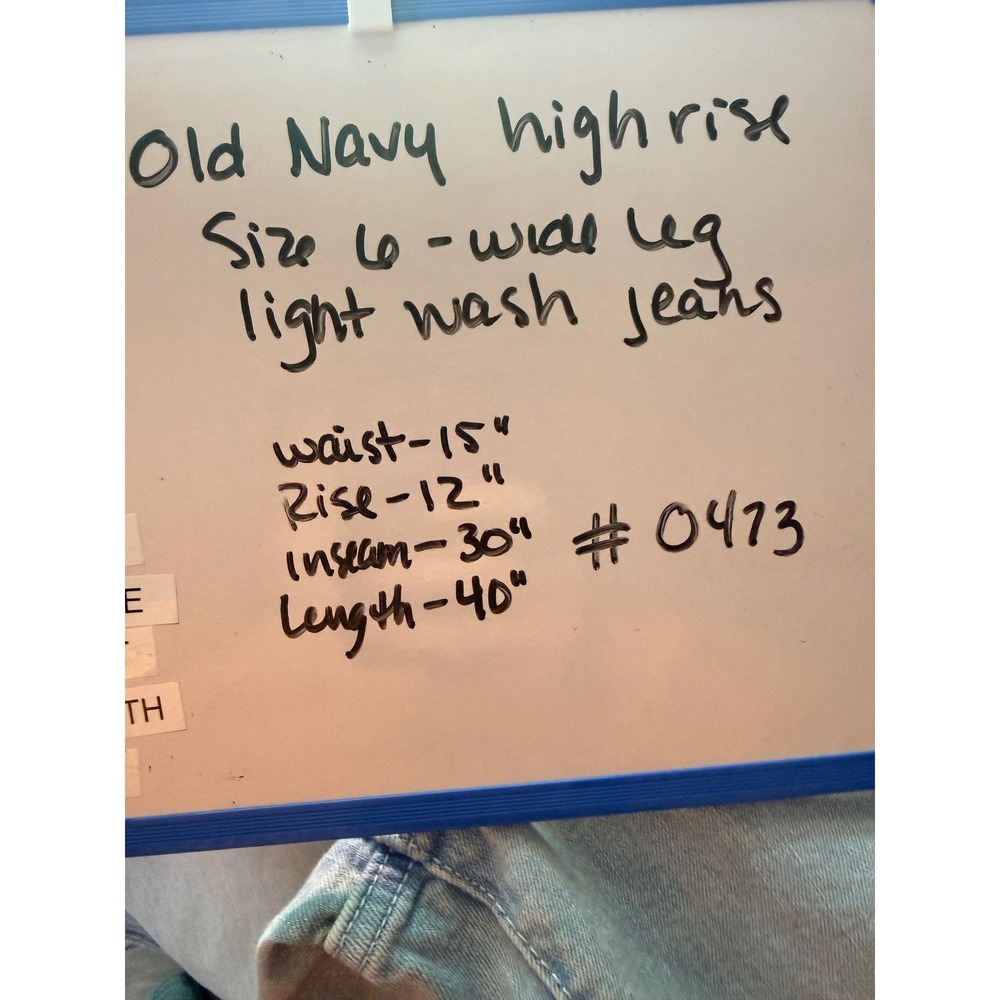 Old Navy high rise
Size 6 - wide leg
light wash jeans
waist - 15"
Rise - 12"
Inseam - 30"
# 0473
Length - 40"
E
TH